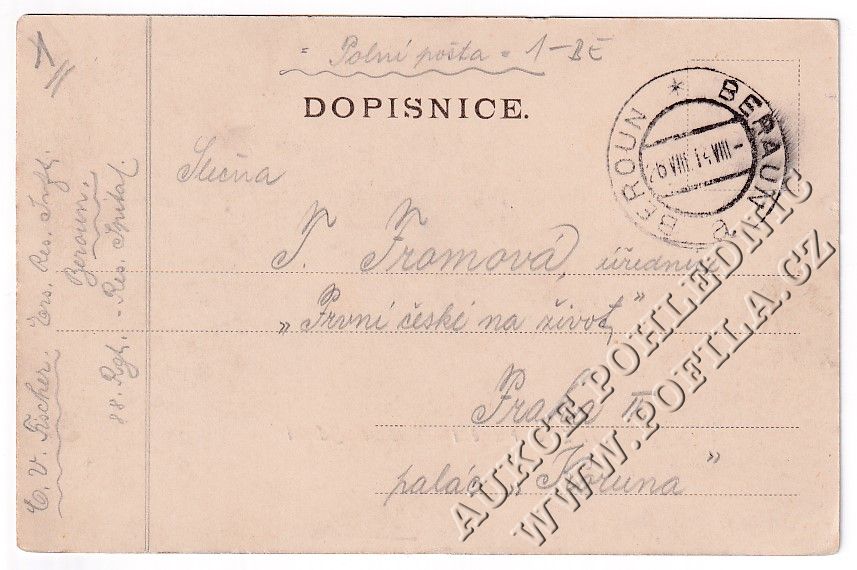 "Polní pošta" 1-BE
DOPISNICE.
BEROUN * BERAUN a
26 VIII 14 VIII-
Slečna
T. Fromová, úřednice
„První české na život"
Praha II
palác „Koruna"
C. V. Fischer. Ers. Res. Inft.
Beroun.
88. Rgt. - Res. Spital.
AUKCE POHLEDNIC
WWW.POFILA.CZ